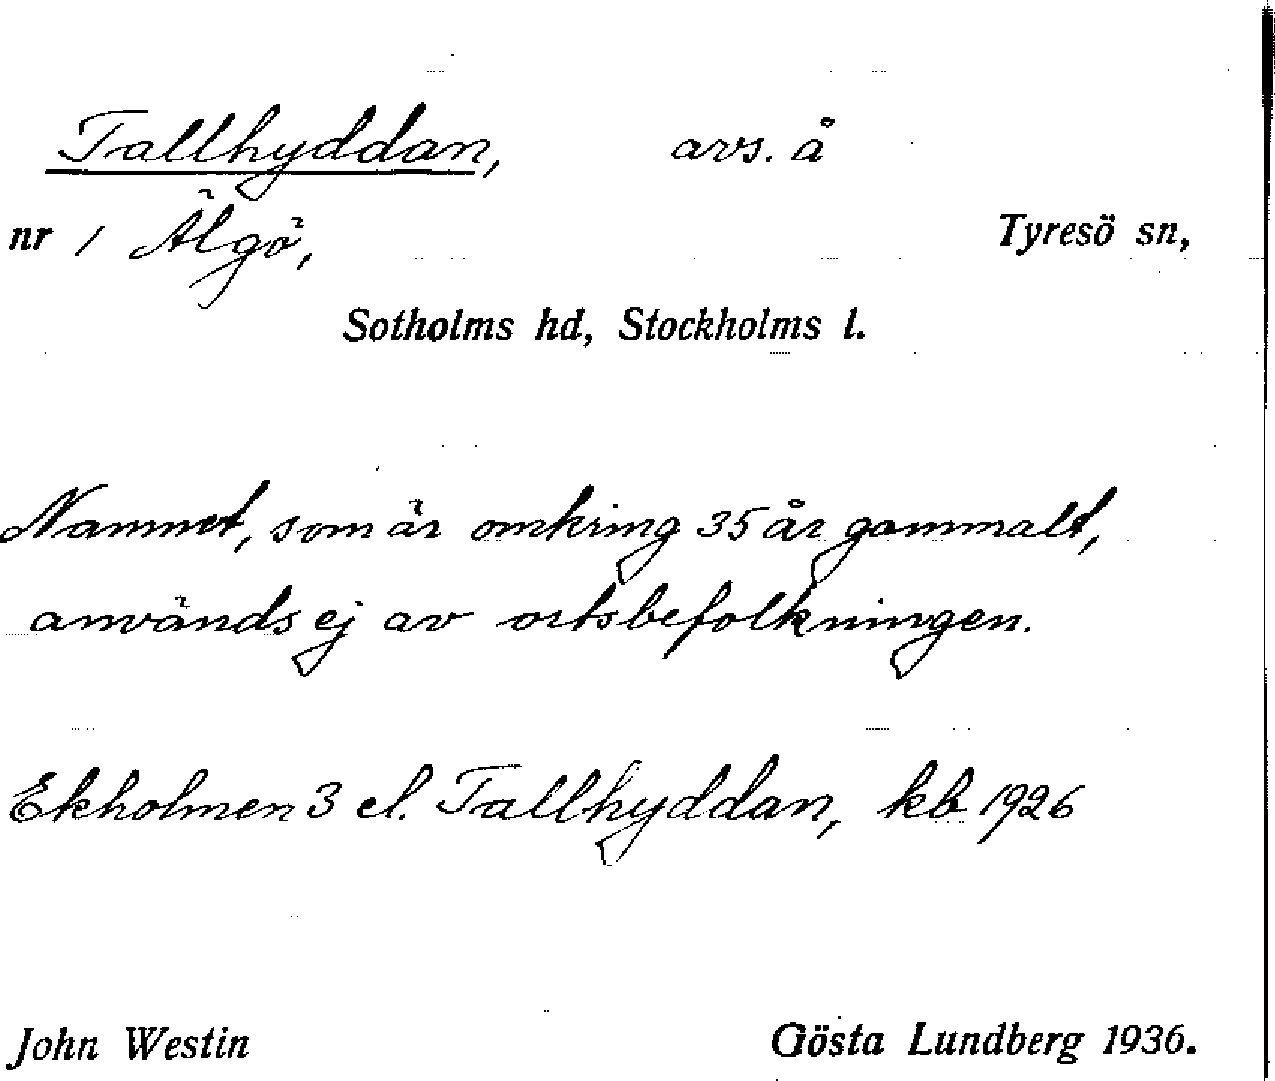 Tallhyddan, avs. å
nr 1 Älgö, Tyresö sn,
Sotholms hd, Stockholms l.
Namnet, som är omkring 35 år gammalt,
används ej av ortsbefolkningen.
Ekholmen 3 el. Tallhyddan, kb 1926
John Westin Gösta Lundberg 1936.